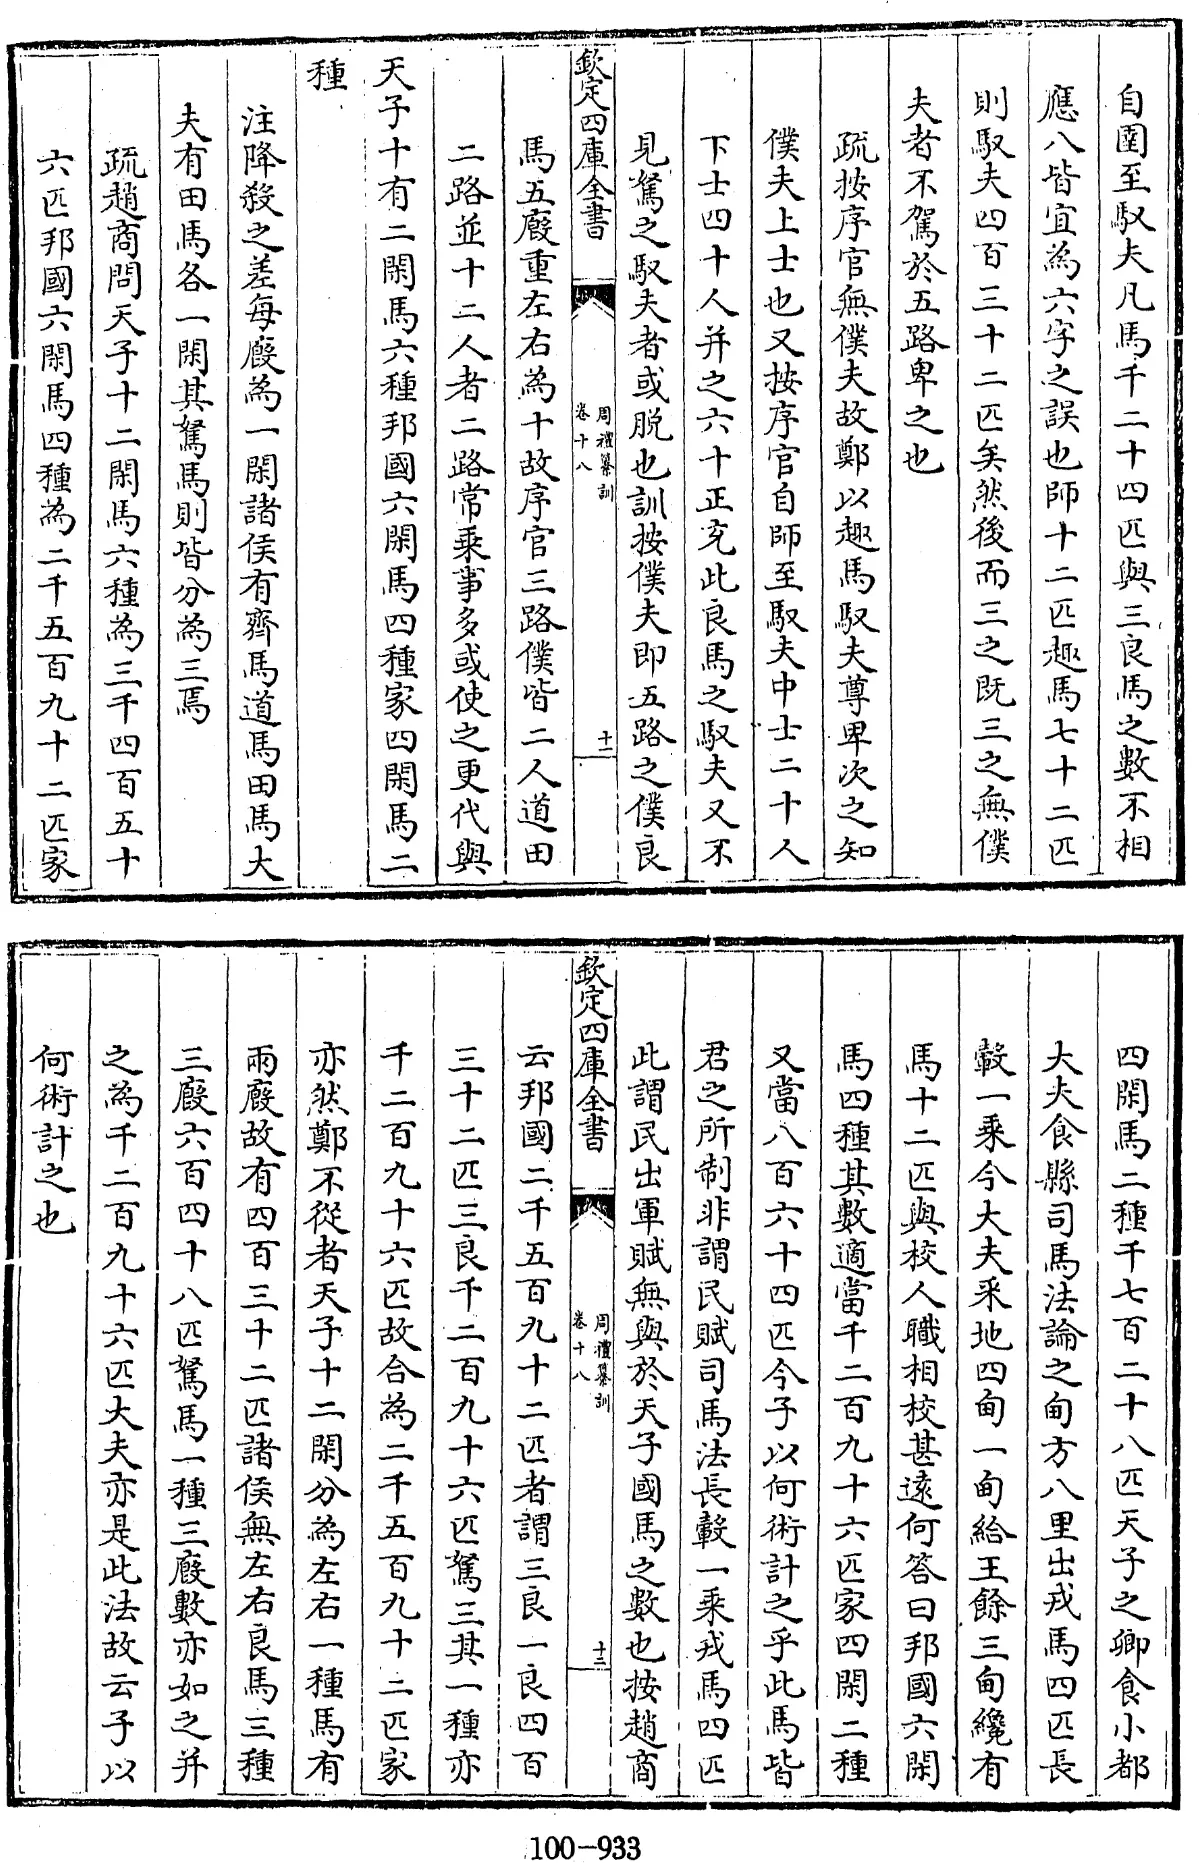 自圉至馭夫凡馬千二十四匹與三良馬之數不相
應八皆宜為六字之誤也師十二匹趣馬七十二匹
則馭夫四百三十二匹矣然後而三之既三之無僕
夫者不駕於五路卑之也
疏按序官無僕夫故鄭以趣馬馭夫尊卑次之知
僕夫上士也又按序官自師至馭夫中士二十人
下士四十人并之六十正充此良馬之馭夫又不
見駑之馭夫者或脱也訓按僕夫即五路之僕良
欽定四庫全書
周禮纂訓
卷十八
十一
馬五廄重左右為十故序官三路僕皆二人道田
二路並十二人者二路常乘事多或使之更代與
天子十有二閑馬六種邦國六閑馬四種家四閑馬二
種
注降殺之差每廄為一閑諸侯有齊馬道馬田馬大
夫有田馬各一閑其駑馬則皆分為三焉
疏趙商問天子十二閑馬六種為三千四百五十
六匹邦國六閑馬四種為二千五百九十二匹家
四閑馬二種千七百二十八匹天子之卿食小都
大夫食縣司馬法論之甸方八里出戎馬四匹長
轂一乘今大夫采地四甸一甸給王餘三甸纔有
馬十二匹與校人職相校甚遠何答曰邦國六閑
馬四種其數適當千二百九十六匹家四閑二種
又當八百六十四匹今子以何術計之乎此馬皆
君之所制非謂民賦司馬法長轂一乘戎馬四匹
此謂民出軍賦無與於天子國馬之數也按趙商
欽定四庫全書
周禮纂訓
卷十八
十二
云邦國二千五百九十二匹者謂三良一良四百
三十二匹三良千二百九十六匹駑三其一種亦
千二百九十六匹故合為二千五百九十二匹家
亦然鄭不從者天子十二閑分為左右一種馬有
兩廄故有四百三十二匹諸侯無左右良馬三種
三廄六百四十八匹駑馬一種三廄數亦如之并
之為千二百九十六匹大夫亦是此法故云子以
何術計之也
100-933